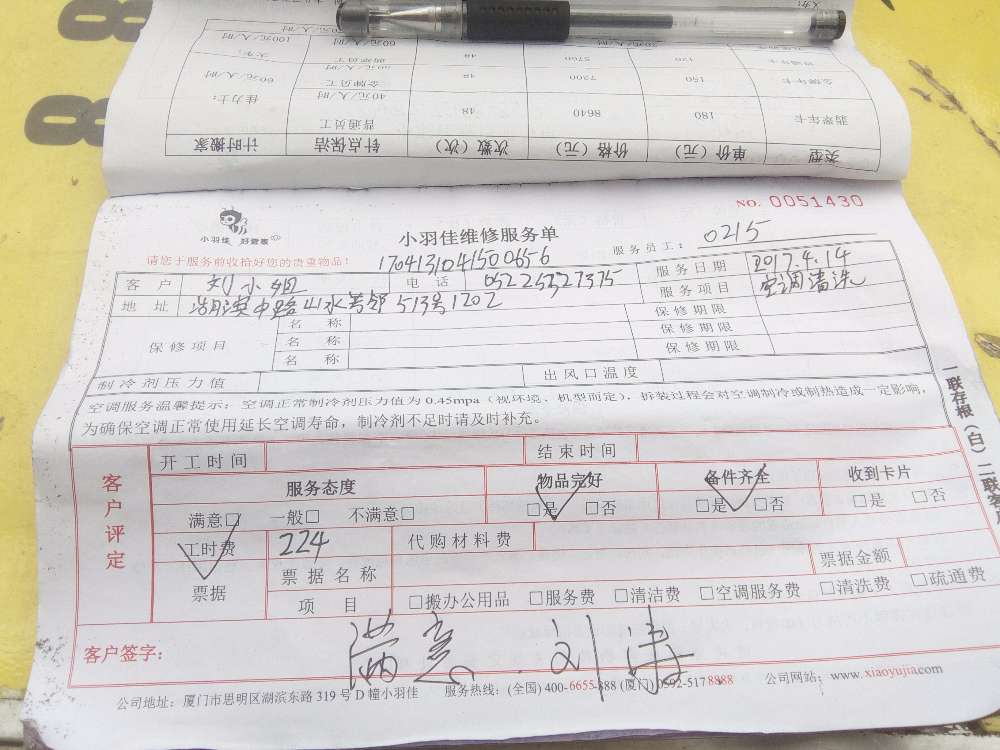 类型 单价(元) 价格(元) 次数(次) 钟点保洁 计时搬家
翡翠年卡 180 8640 48 普通员工 40元/人/时 佳力士:
金牌年卡 150 7200 48 金牌员工 60元/人/时
120 5760 48 翡翠员工 大件: 100元/人/时
NO. 0051430
小羽佳 好管家
小羽佳维修服务单
服务员工: 0215
请您于服务前收拾好您的贵重物品! 17041310415006S6
客户 刘小姐 电话 05225327375 服务日期 2017.4.14
地址 湖滨中路山水芳邻513号1202 服务项目 空调清洗
保修项目 名称 保修期限
名称 保修期限
名称 保修期限
制冷剂压力值 出风口温度
空调服务温馨提示:空调正常制冷剂压力值为0.45mpa(视环境、机型而定),拆装过程会对空调制冷或制热造成一定影响,
为确保空调正常使用延长空调寿命,制冷剂不足时请及时补充。
一联存根(白)二联客户
客户评定
开工时间 结束时间
服务态度 物品完好 备件齐全 收到卡片
满意□ 一般□ 不满意□ □是 □否 □是 □否 □是 □否
工时费 224 代购材料费
票据 票据名称 票据金额
项目 □搬办公用品 □服务费 □清洁费 □空调服务费 □清洗费 □疏通费
客户签字: 满意.刘涛
公司地址:厦门市思明区湖滨东路319号D幢小羽佳 服务热线:(全国)400-6655-888(厦门)0592-5178888 公司网站:www.xiaoyujia.com